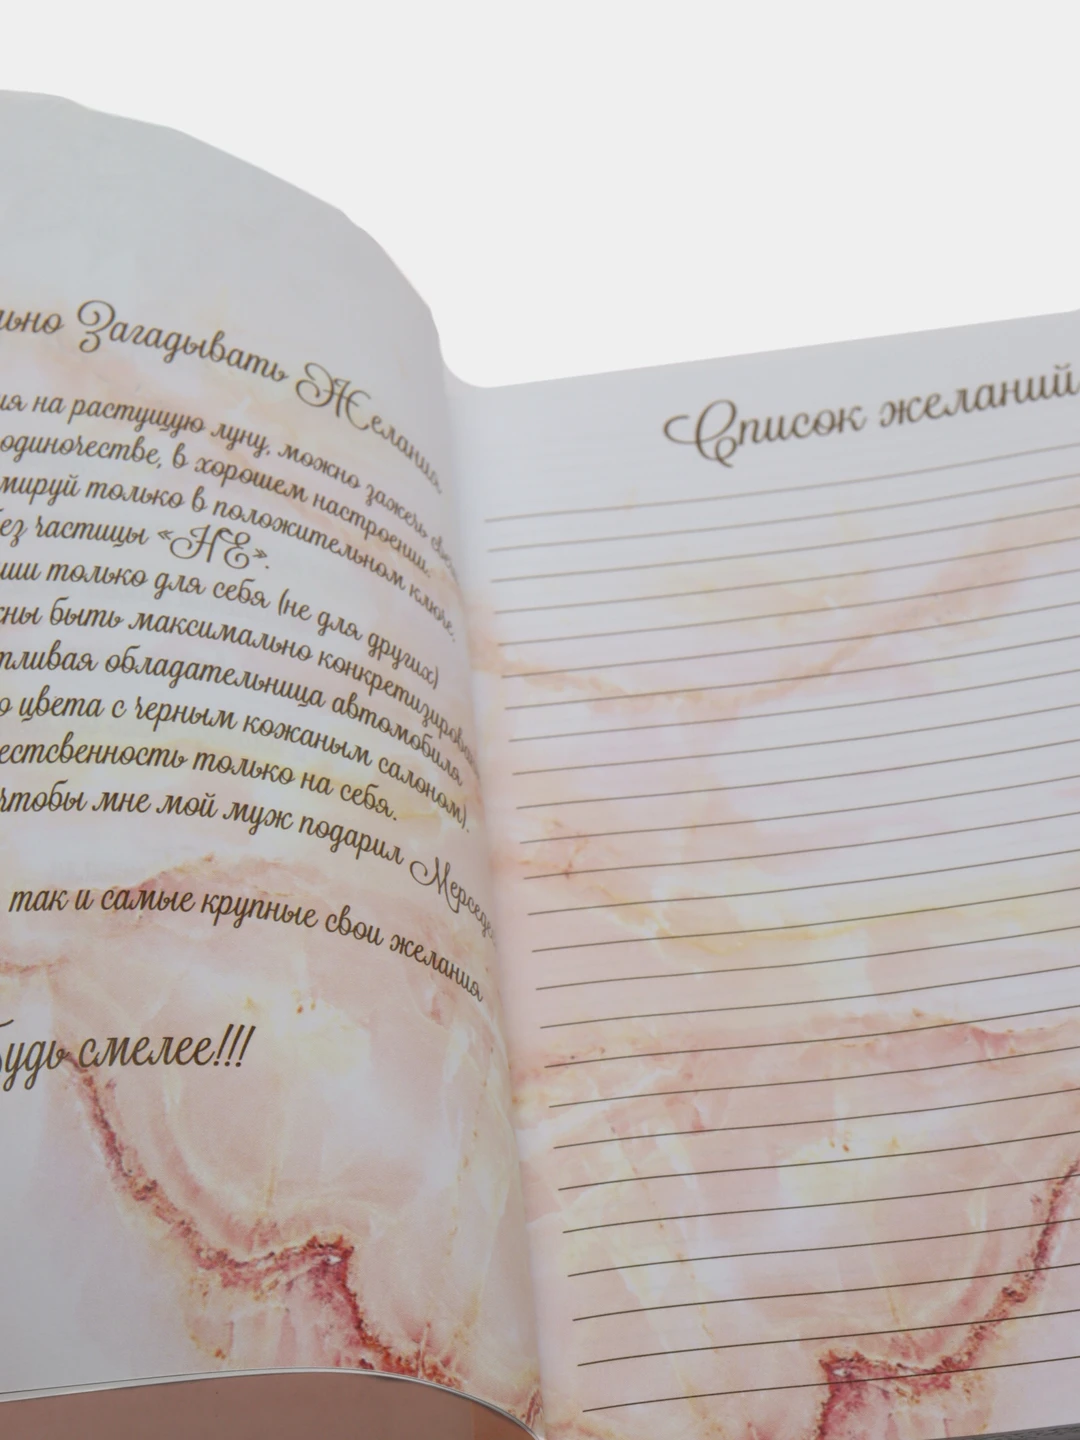 Загадывать Желания
на растущую луну, можно зажечь
одиночестве, в хорошем настроении.
только в положительном ключе.
частицы «НЕ».
только для себя (не для других)
быть максимально
обладательница автомобиля
цвета с черным кожаным салоном).
только на себя.
чтобы мне мой муж подарил
так и самые крупные свои желания
будь смелее!!!
Список желаний